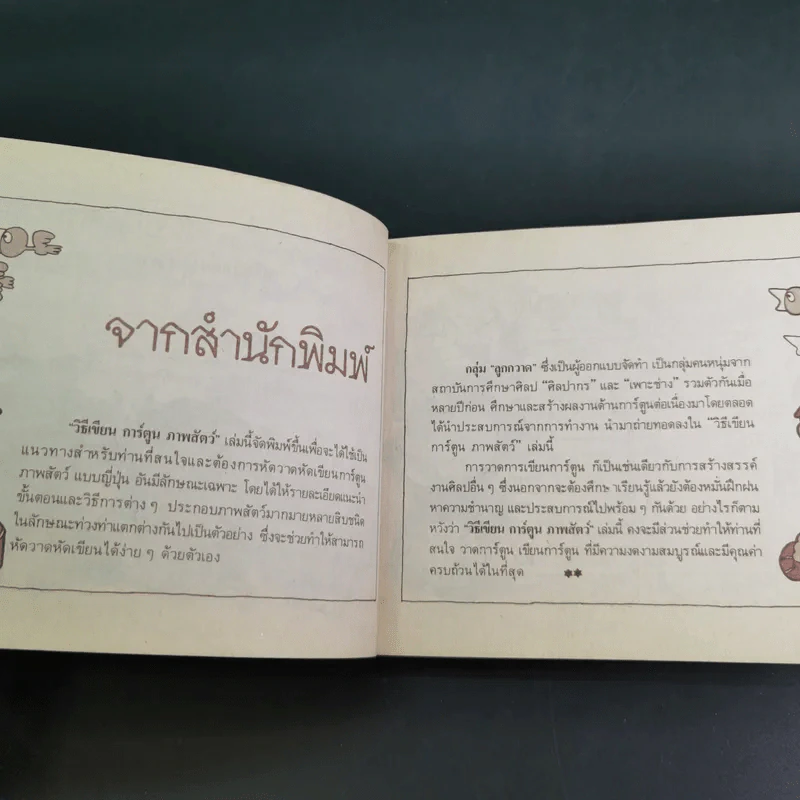 จากสำนักพิมพ์
"วิธีเขียน การ์ตูน ภาพสัตว์" เล่มนี้จัดพิมพ์ขึ้นเพื่อจะได้ใช้เป็น
แนวทางสำหรับท่านที่สนใจและต้องการหัดวาดหัดเขียนการ์ตูน
ภาพสัตว์ แบบญี่ปุ่น อันมีลักษณะเฉพาะ โดยได้ให้รายละเอียดแนะนำ
ขั้นตอนและวิธีการต่าง ๆ ประกอบภาพสัตว์มากมายหลายสิบชนิด
ในลักษณะท่วงท่าแตกต่างกันไปเป็นตัวอย่าง ซึ่งจะช่วยทำให้สามารถ
หัดวาดหัดเขียนได้ง่าย ๆ ด้วยตัวเอง
กลุ่ม "ลูกกวาด" ซึ่งเป็นผู้ออกแบบจัดทำ เป็นกลุ่มคนหนุ่มจาก
สถาบันการศึกษาศิลป "ศิลปากร" และ "เพาะช่าง" รวมตัวกันเมื่อ
หลายปีก่อน ศึกษาและสร้างผลงานด้านการ์ตูนต่อเนื่องมาโดยตลอด
ได้นำประสบการณ์จากการทำงาน นำมาถ่ายทอดลงใน "วิธีเขียน
การ์ตูน ภาพสัตว์" เล่มนี้
การวาดการเขียนการ์ตูน ก็เป็นเช่นเดียวกับการสร้างสรรค์
งานศิลปอื่น ๆ ซึ่งนอกจากจะต้องศึกษาเรียนรู้แล้วยังต้องหมั่นฝึกฝน
หาความชำนาญ และประสบการณ์ไปพร้อม ๆ กันด้วย อย่างไรก็ตาม
หวังว่า "วิธีเขียน การ์ตูน ภาพสัตว์" เล่มนี้ คงจะมีส่วนช่วยทำให้ท่านที่
สนใจ วาดการ์ตูน เขียนการ์ตูน ที่มีความงดงามสมบูรณ์และมีคุณค่า
ครบถ้วนได้ในที่สุด **